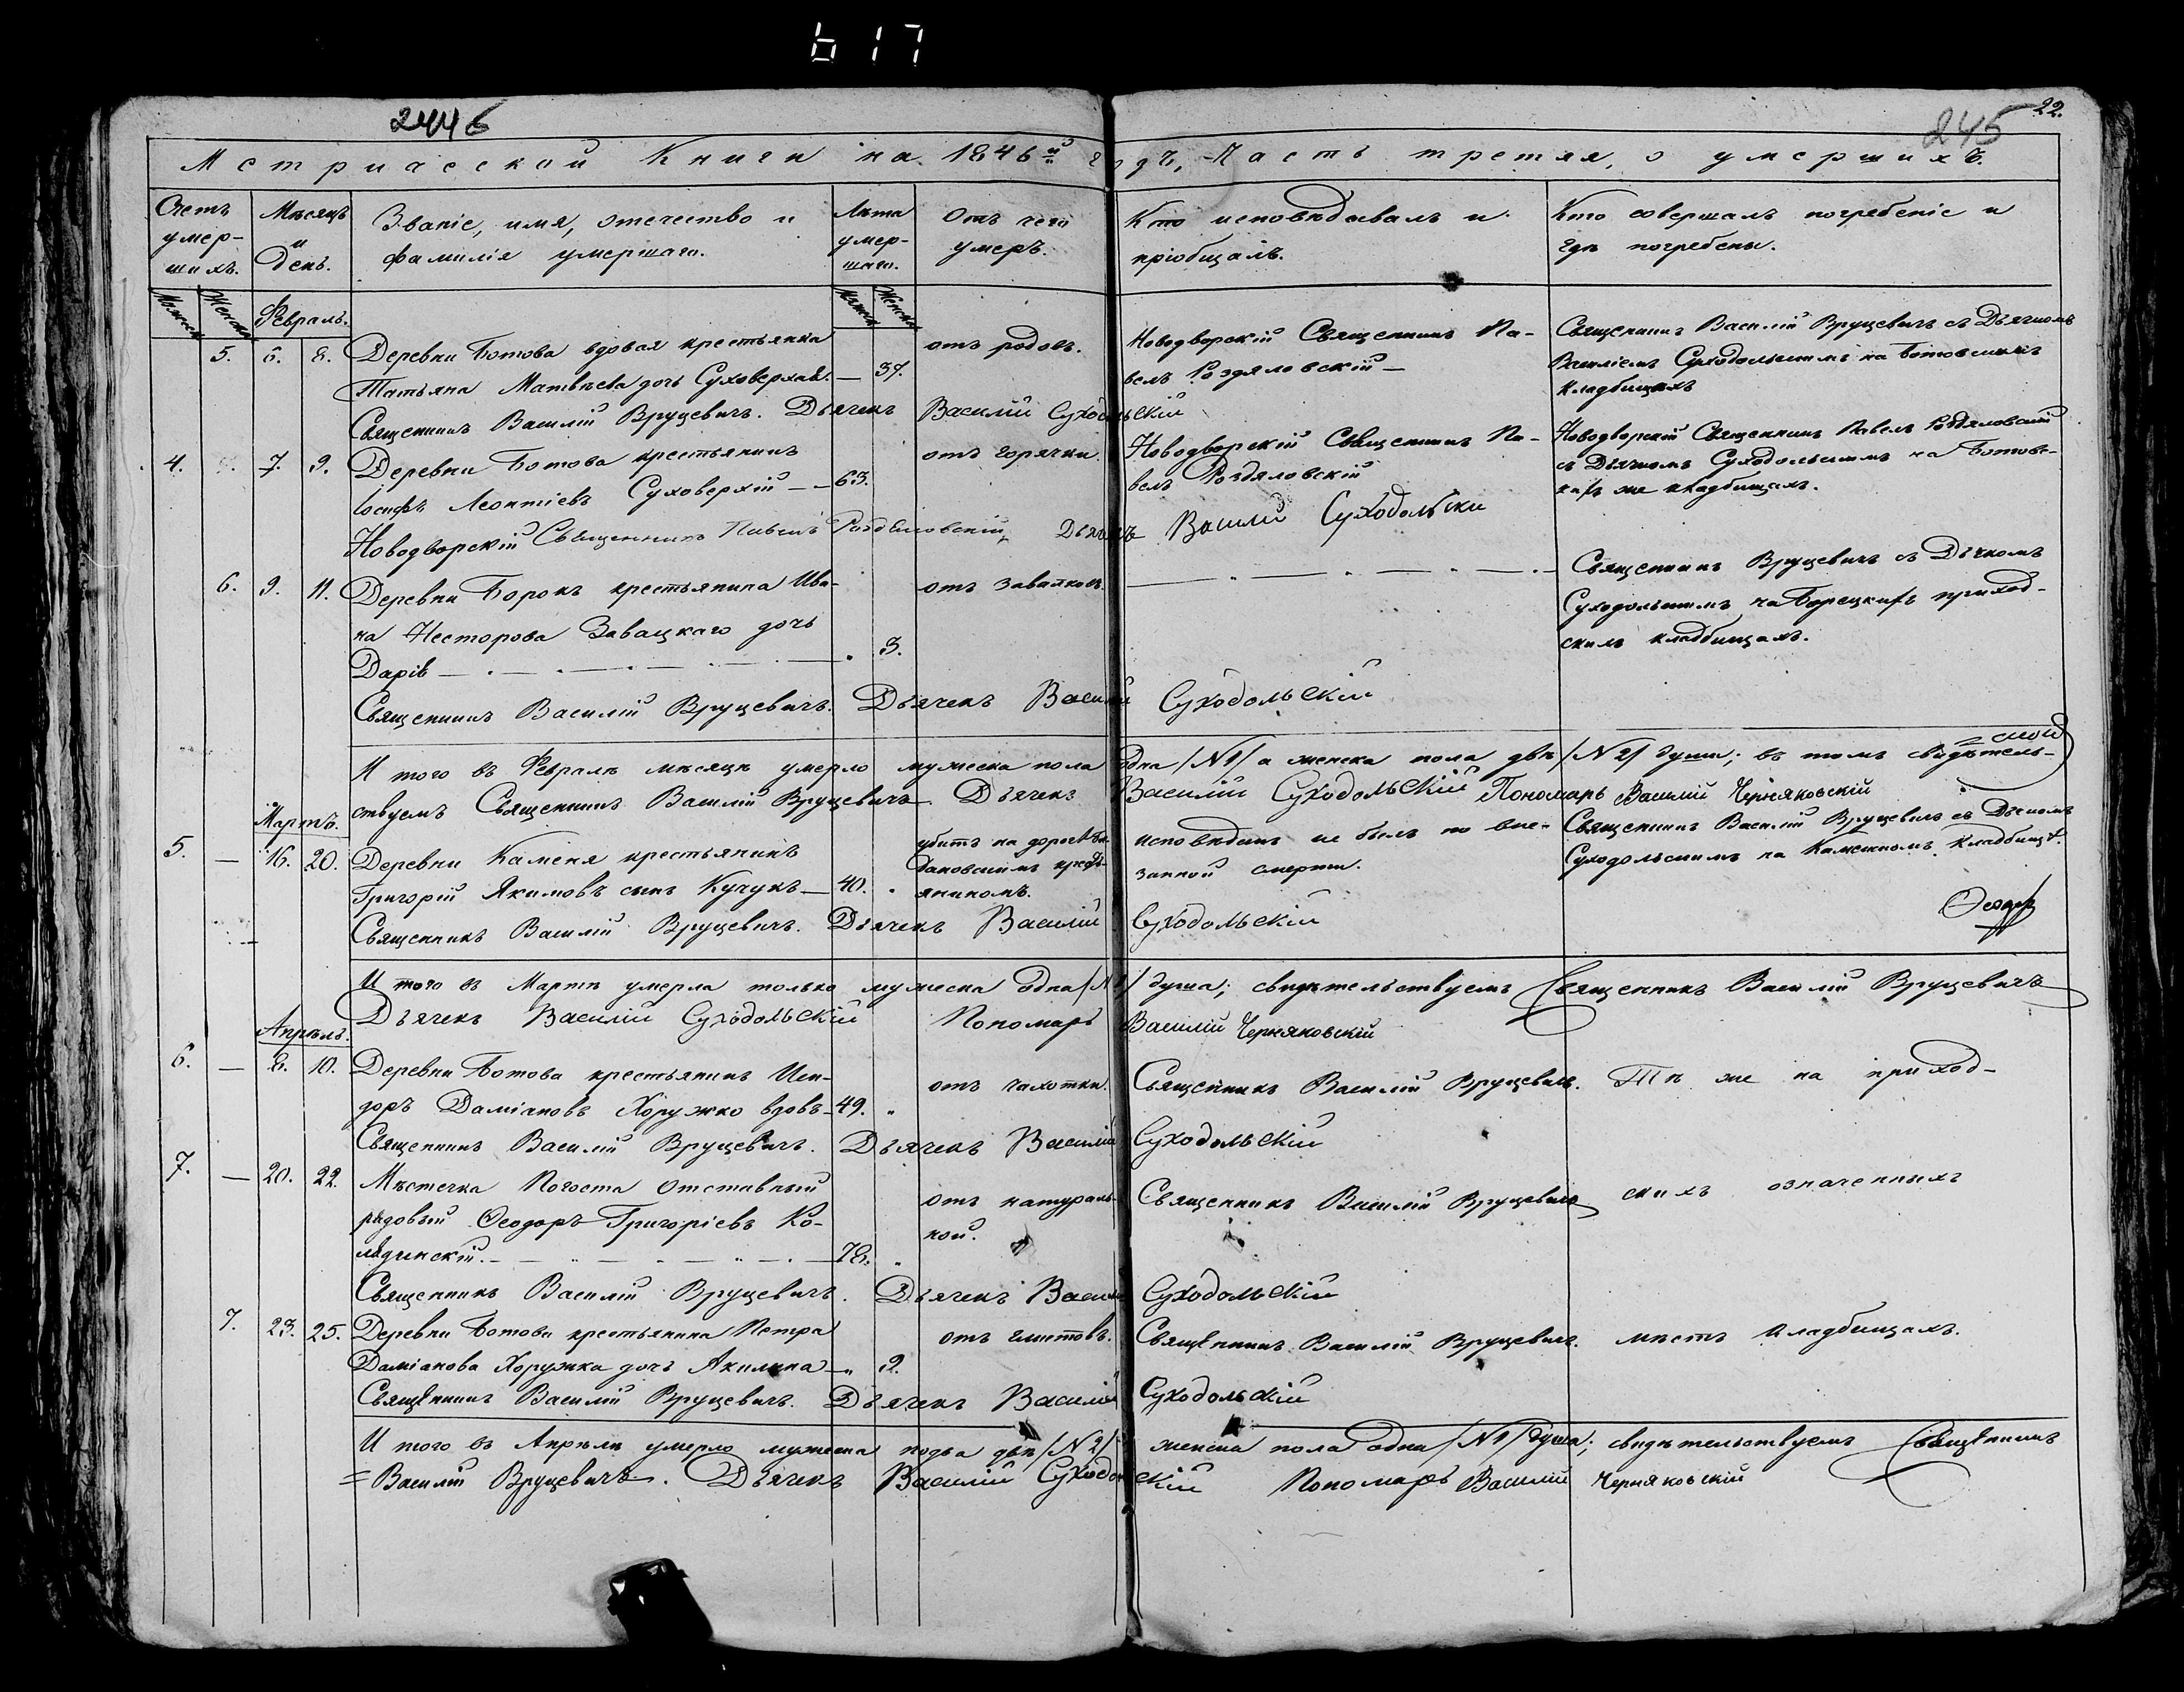 617
2446
245
22.
Метрической Книги на 1846й годъ, Часть третяя, о умершихъ.
Счетъ умер-шихъ.
Мѣсяцъ и день.
Званіе, имя, отечество и фамилія умершаго.
Лѣта умер-шаго.
Отъ чего умеръ.
Кто исповѣдывалъ и пріобщалъ.
Кто совершалъ погребеніе и гдѣ погребены.
Мужеск Женска Февраль. Мужеск Женска
5. 6. 8. Деревни Ботова вдовая крестьянка отъ родовъ. Новодворскій Священникъ Па- Священникъ Василій Вруцевичъ съ Дьячкомъ
Татьяна Матвѣева дочь Суховерхая. — 37. велъ Роздяловскій — Василіемъ Суходольскимъ на Ботовскихъ
кладбищахъ
Священникъ Василій Вруцевичъ. Дьячекъ Василій Суходольскій
4. 7. 9. Деревни Ботова крестьянинъ отъ горячки. Новодворскій Священникъ Па- Новодворскій Священникъ Павелъ Роздяловскій
Іосифъ Леонтіевъ Суховерхій — 63. велъ Роздяловскій съ Дьячкомъ Суходольскимъ на Ботовс-
кихъ же кладбищахъ.
Новодворскій Священникъ Павелъ Роздяловскій, Дьячекъ Василий Суходольски
6. 9. 11. Деревни Борокъ крестьянина Ива- отъ завалковъ. Священникъ Вруцевичъ съ Дьчкомъ
на Несторова Завацкаго дочь Суходольскимъ на Борецкихъ приход-
Дарія — 3. скихъ кладбищахъ.
Священникъ Василій Вруцевичъ. Дьячекъ Василій Суходольскій
И того въ Февралѣ мѣсяцѣ умерло мужеска пола одна /№1/ а женска пола двѣ /№2/ души; въ томъ свидѣтель-
ствуемъ Священникъ Василій Вруцевичъ. Дьячекъ Василій Суходольскій Пономарь Василій Черняковскій
Мартъ.
5. — 16. 20. Деревни Каменя крестьянинъ убитъ на дорогѣ исповѣданъ не былъ по вне- Священникъ Василій Вруцевичъ съ Дьчкомъ
Григорій Якимовъ сынъ Кучукъ — 40. яниномъ. запной смерти. Суходольскимъ на Каменномъ Кладбищѣ.
Священникъ Василій Вруцевичъ. Дьячекъ Василій Суходольскій
И того въ Мартѣ умерла только мужеска одна /№1/ душа; свидѣтельствуемъ Священникъ Василій Вруцевичъ
Дьячекъ Василій Суходольскій Пономарь Василій Черняковскій
Апрѣль.
6. — 8. 10. Деревни Ботова крестьянинъ Иси- отъ чахотки. Священникъ Василій Вруцевичъ. Тѣ же на приход-
доръ Даміановъ Хоружко вдовъ — 49. „
Священникъ Василій Вруцевичъ. Дьячекъ Василій Суходольскій
7. — 20. 22. Мѣстечка Погоста отставный отъ натураль- Священникъ Василій Вруцевичъ скихъ означенныхъ
рядовый Ѳеодоръ Григоріевъ Ко- ной.
лядинскій. — 78. „
Священникъ Василій Вруцевичъ. Дьячекъ Василій Суходольскій
7. 23. 25. Деревни Ботова крестьянина Петра отъ глистовъ. Священникъ Василій Вруцевичъ. мѣстъ кладбищахъ.
Даміанова Хоружка дочь Акилина — „ 2.
Священникъ Василій Вруцевичъ. Дьячекъ Василій Суходольскій
И того въ Апрѣлѣ умерло мужеска двѣ /№2/ женска пола одна /№1/ душа; свидѣтельствуемъ Священникъ
= Василій Вруцевичъ. Дьячекъ Василій Суходольскій Пономарь Василій Черняковскій